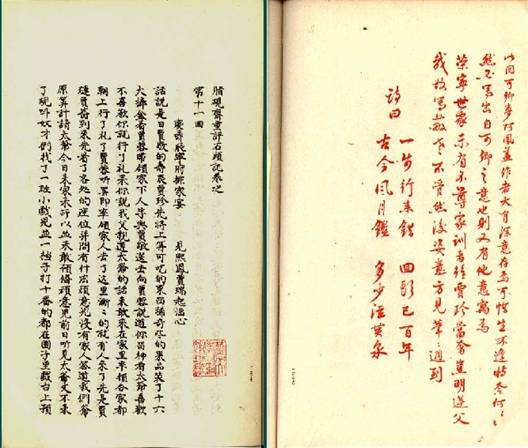 此回可卿夢阿鳳盖作者大有深意存焉可惜生不逢時奈何〻〻
然必寫出自可卿之意也則又有他意寓焉
榮寧世家未有不尊家訓者雖賈珍當奢豈明逆父
哉故寫敬老不管然後恣意方見筆〻週到
詩曰
一步行來錯 回頭已百年
古今風月鑑 多少泣黃泉
脂硯齋重評石頭記卷之
第十一回
慶壽辰寧府排家宴 見熙鳳賈瑞起淫心
話說是日賈敬的壽辰賈珍先將上等可吃的東西稀奇些的菓品裝了十六
大捧盒着賈蓉帶領家下人等與賈敬送去向賈蓉說道你留神看太爺喜歡
不喜歡你就行了礼來你說我父親遵太爺的話未敢來在家里率領合家都
朝上行了礼了賈蓉聽罷即率領家人去了這里漸〻的就有人來了先是賈
璉賈薔到來先看了各處的座位並問有什広頑意兒沒有家人答道我們爺
原算計請太爺今日來家來所以並未敢預備頑意兒前日聽見太爺又不來
了現叫奴才們找了一班小戲兒並一檔子打十番的都在園子里戲台上預